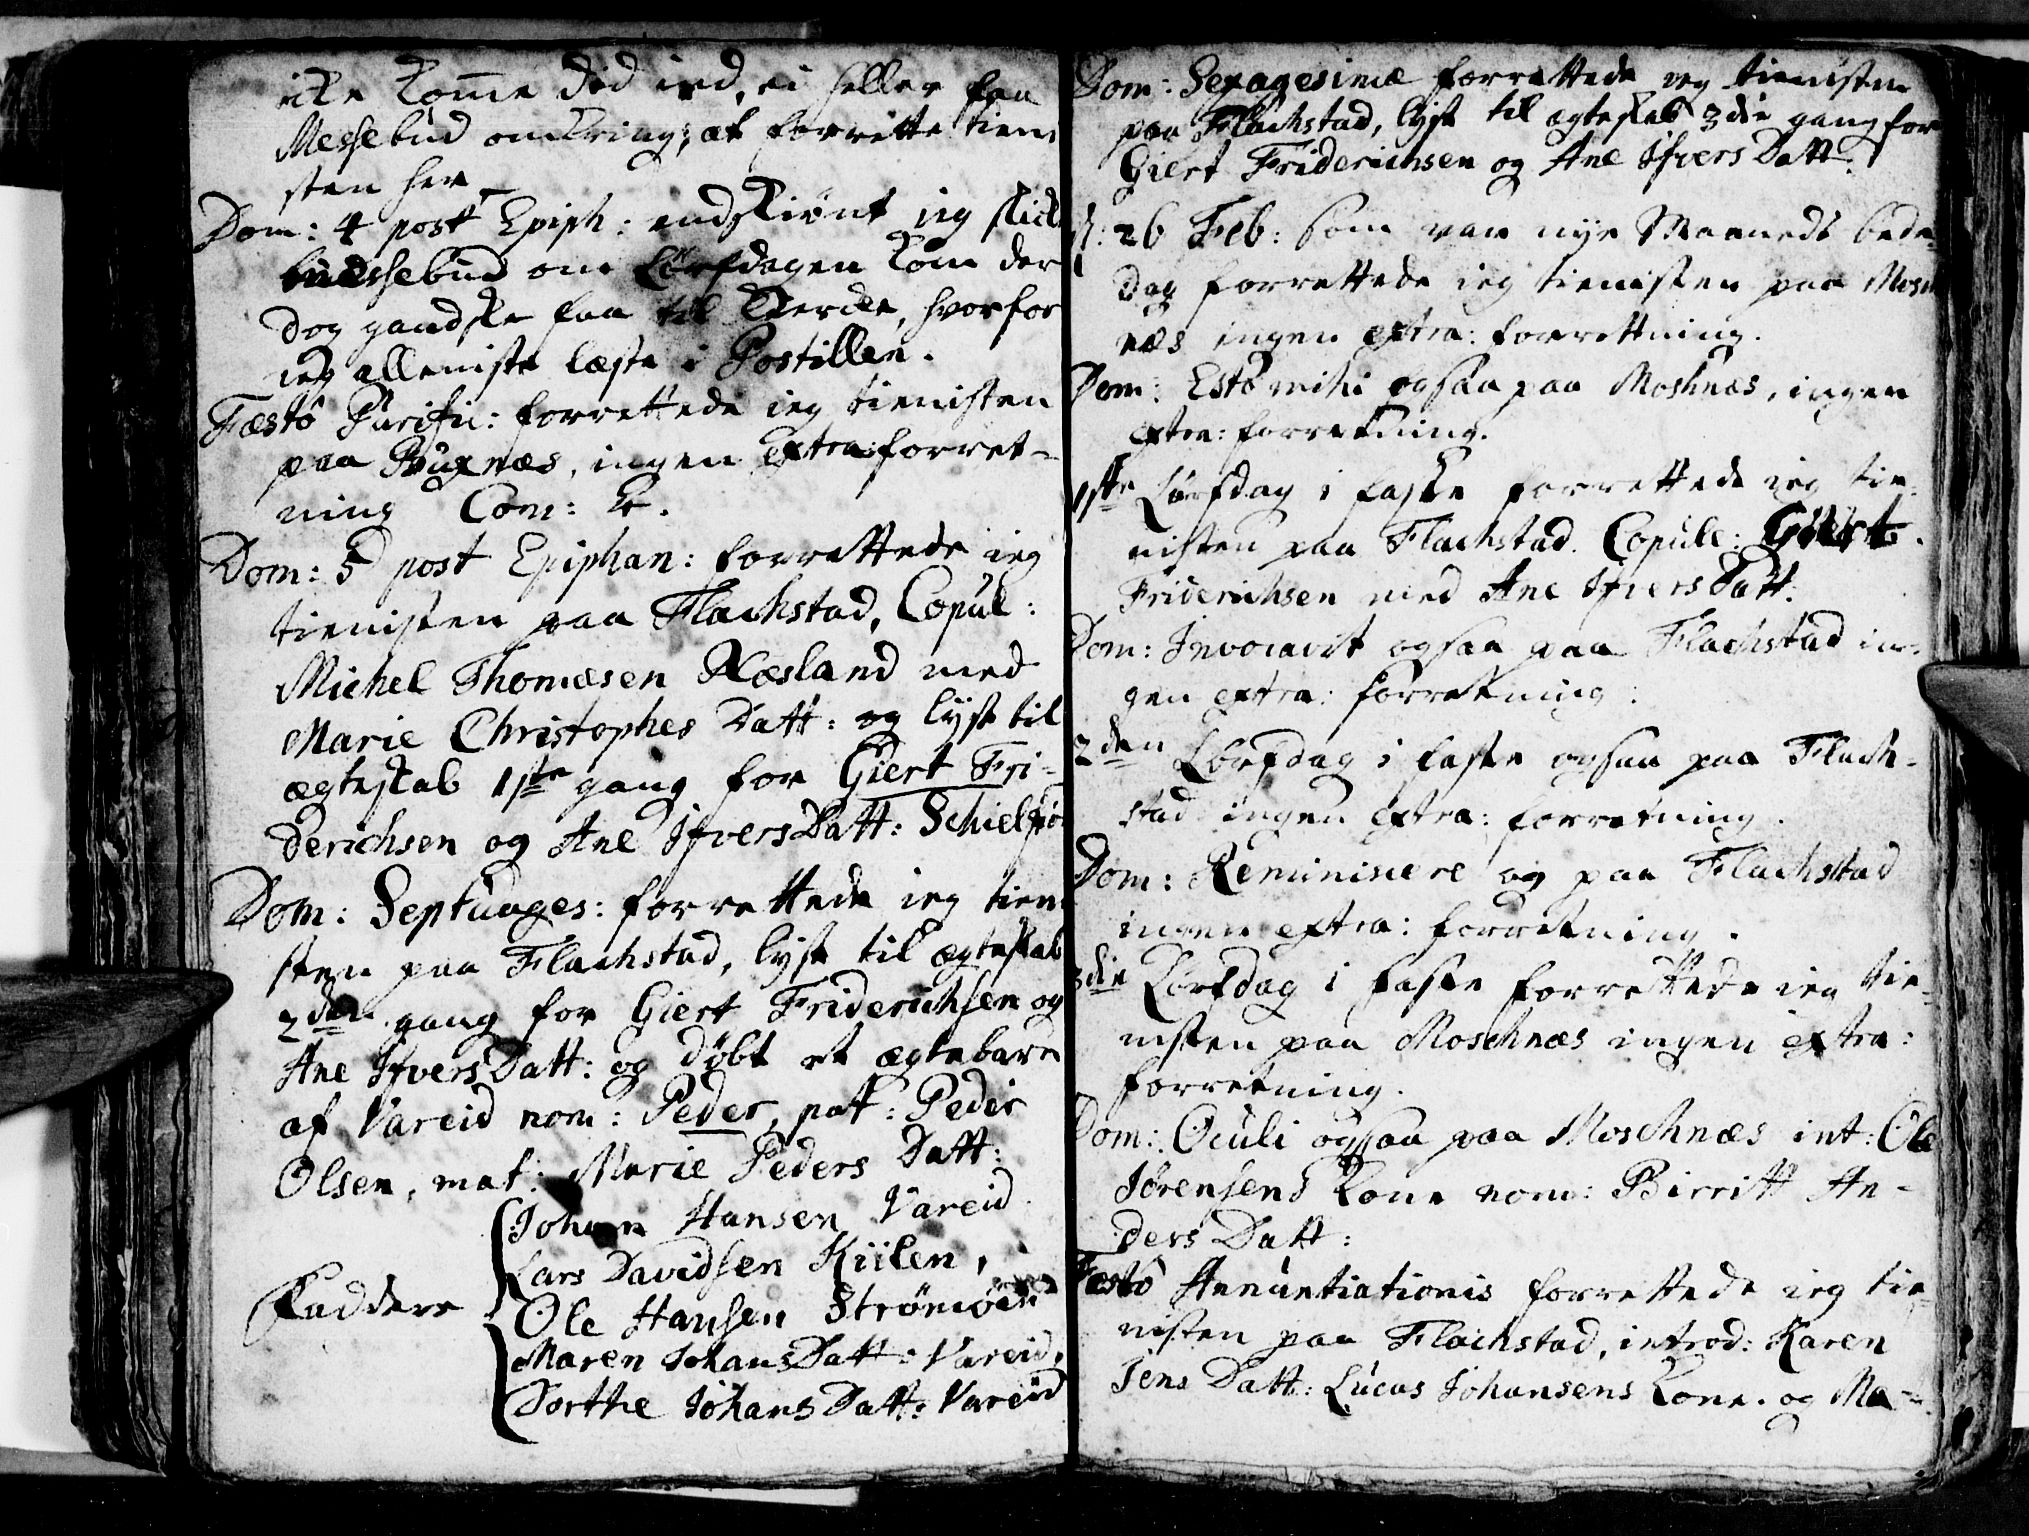 icke komme did ind, ei heller faa
Messebud omkring; at forrette tieni
sten her
Dom: 4 post Epiph: endskiønt ieg skick
messebud om Løfdagen kom der
dog gandske faa til Kercke, hvorfor
ieg alleniste læste i Postillen.
Fæstô Purific: forrettede ieg tienisten
paa Buxnæs, ingen extra: forret-
ning Com:
Dom: 5 post Epiphan: forrettede ieg
tienisten paa Flachstad, Copul:
Michel Thomæsen Næsland med
Marie Christophes Datt: og lyst til
ægteskab 1ste gang for Giert Fri-
derichsen og Ane IfversDatt: Schielfio
Dom: Septuages: forrettede ieg tieni
sten paa Flachstad, lyst til ægteskab
2den gang for Giert Friderichsen og
Ane IfversDatt: og døbt et ægtebarn
af Vareid nom: Peder, pat: Peder
Olsen, mat: Marie Peders Datt:
Johan Hansen Vareid
Lars Davidsen Kiilen,
Fadders Ole Hansen Strømøen
Maren JohansDatt: Vareid,
Dorthe JohansDatt: Vareid
Dom: Sexagesimæ forrettede ieg tienisten
paa Flachstad, lyst til ægteskab 3die gang for
Giert Friderichsen og Ane IfversDatt.
d: 26 Feb: som var nye Maaneds bede-
dag forrettede ieg tienisten paa Mosch
næs ingen extra: forrettning.
Dom: Estô mihi ogsaa paa Moshnæs, ingen
extra: forretning.
1ste Løfdag i faste forrettede ieg tie-
nisten paa Flachstad. Copule: Giert
Friderichsen med Ane IfversDatt:
Dom: Invocavit ogsaa paa Flachstad in-
gen extra: forretning:
2den Løfdag i faste ogsaa paa Flach-
stad ingen extra: forretning.
Dom: Reminiscere og paa Flachstad
ingen extra: forretning.
3die Løfdag i faste forrettede ieg tie-
nisten paa Moschnæs ingen extra:
forretning.
Dom: Oculi ogsaa paa Moschnæs int: Ole
Jørensens Kone nom: Birritt An-
ders Datt:
Fæstô Annuntiationis forrettede ieg tie-
nisten paa Flachstad, introd: Karen
Jens Datt: Lucas Johansens Kone. og Ma-